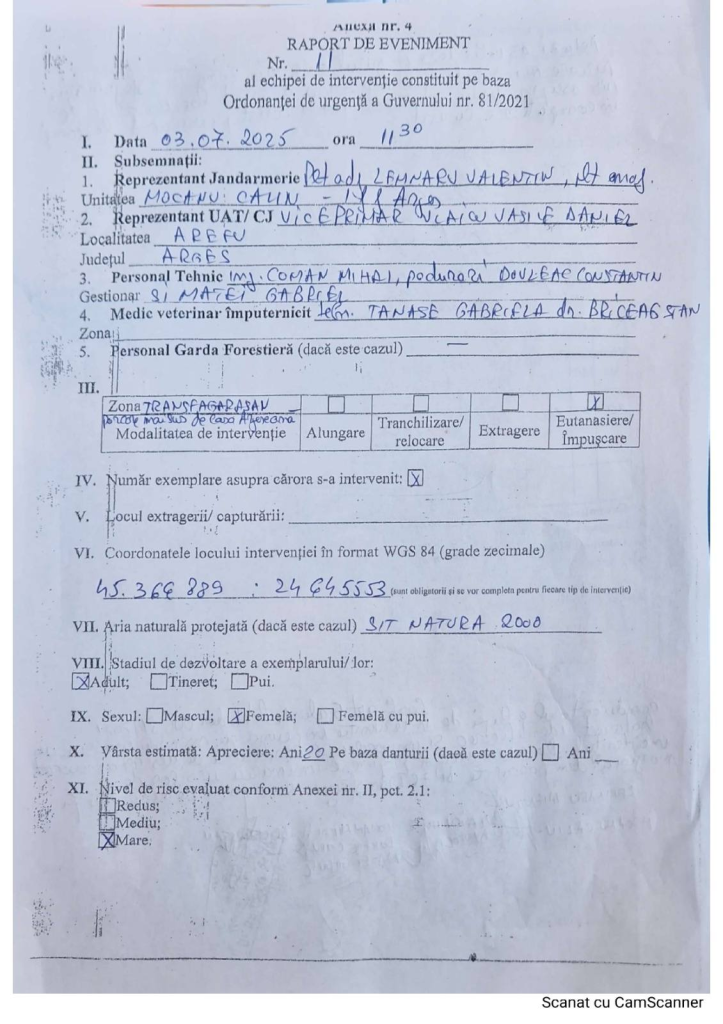 Anexa nr. 4
RAPORT DE EVENIMENT
Nr. 11
al echipei de intervenție constituit pe baza
Ordonanței de urgență a Guvernului nr. 81/2021
I. Data 03.07.2025 ora 11 30
II. Subsemnații:
1. Reprezentant Jandarmerie Plt adj LEMNARU VALENTIN, plt maj.
Unitatea MOCANU CALIN - Argeș
2. Reprezentant UAT/ CJ VICEPRIMAR VLAICU VASILE DANIEL
Localitatea AREFU
Județul ARGES
3. Personal Tehnic ing. COMAN MIHAI, pădurari DOULEAC CONSTANTIN
Gestionar SI MATEI GABRIEL
4. Medic veterinar împuternicit TANASE GABRIELA dr. BRICEAG STAN
Zona:
5. Personal Garda Forestieră (dacă este cazul) —
III.
Zona TRANSFAGARASAN
mai sus de Casa Argeseana
Modalitatea de intervenție
Alungare
Tranchilizare/ relocare
Extragere
X Eutanasiere/ Împușcare
IV. Număr exemplare asupra cărora s-a intervenit: X
V. Locul extragerii/ capturării:
VI. Coordonatele locului intervenției în format WGS 84 (grade zecimale)
45.366 889 : 24 645553 (sunt obligatorii și se vor completa pentru fiecare tip de intervenție)
VII. Aria naturală protejată (dacă este cazul) SIT NATURA 2000
VIII. Stadiul de dezvoltare a exemplarului/ lor:
X Adult; Tineret; Pui.
IX. Sexul: Mascul; X Femelă; Femelă cu pui.
X. Vârsta estimată: Apreciere: Ani 20 Pe baza danturii (dacă este cazul) Ani
XI. Nivel de risc evaluat conform Anexei nr. II, pct. 2.1:
Redus;
Mediu;
X Mare.
Scanat cu CamScanner